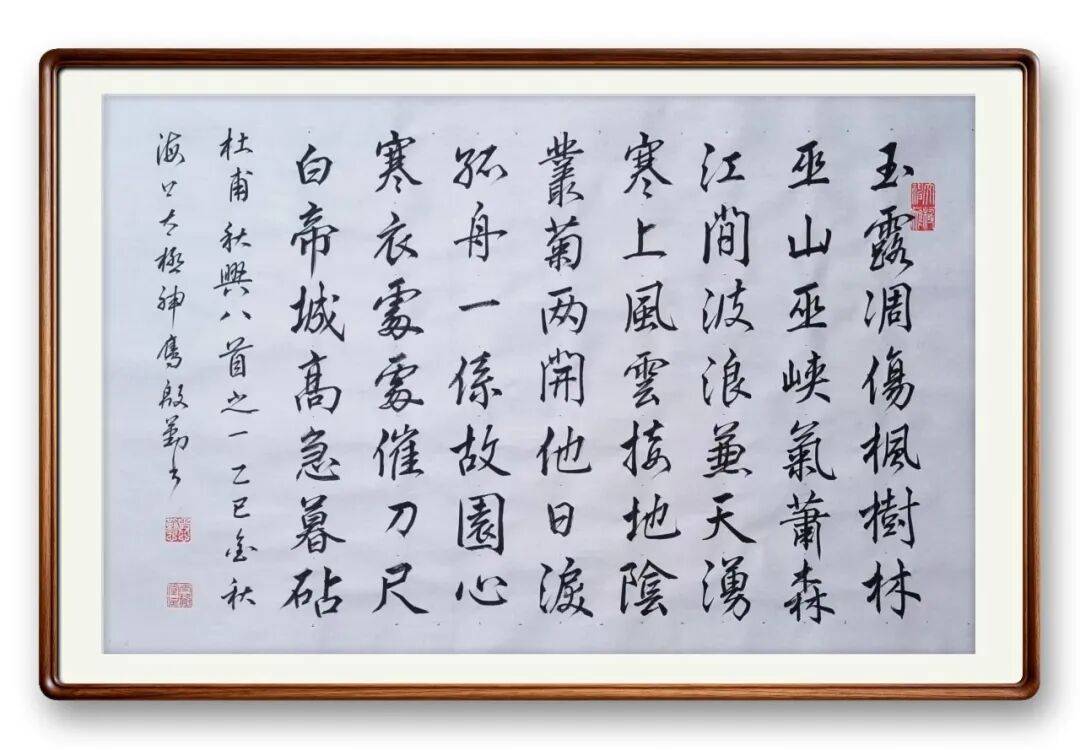 玉露凋傷楓樹林
巫山巫峽氣蕭森
江間波浪兼天湧
寒上風雲接地陰
叢菊两開他日淚
孤舟一係故園心
寒衣處處催刀尺
白帝城高急暮砧
杜甫秋興八首之一乙巳金秋
海口太極神鹰殷勤书